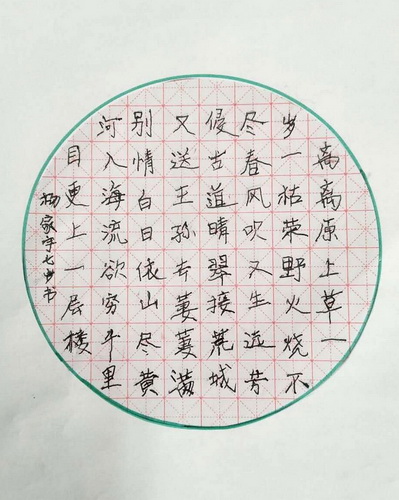 离离原上草一
岁一枯荣野火烧不
尽春风吹又生远芳
侵古道晴翠接荒城
又送王孙去萋萋满
别情白日依山尽黄
河入海流欲穷千里
目更上一层楼
杨家宇七岁书